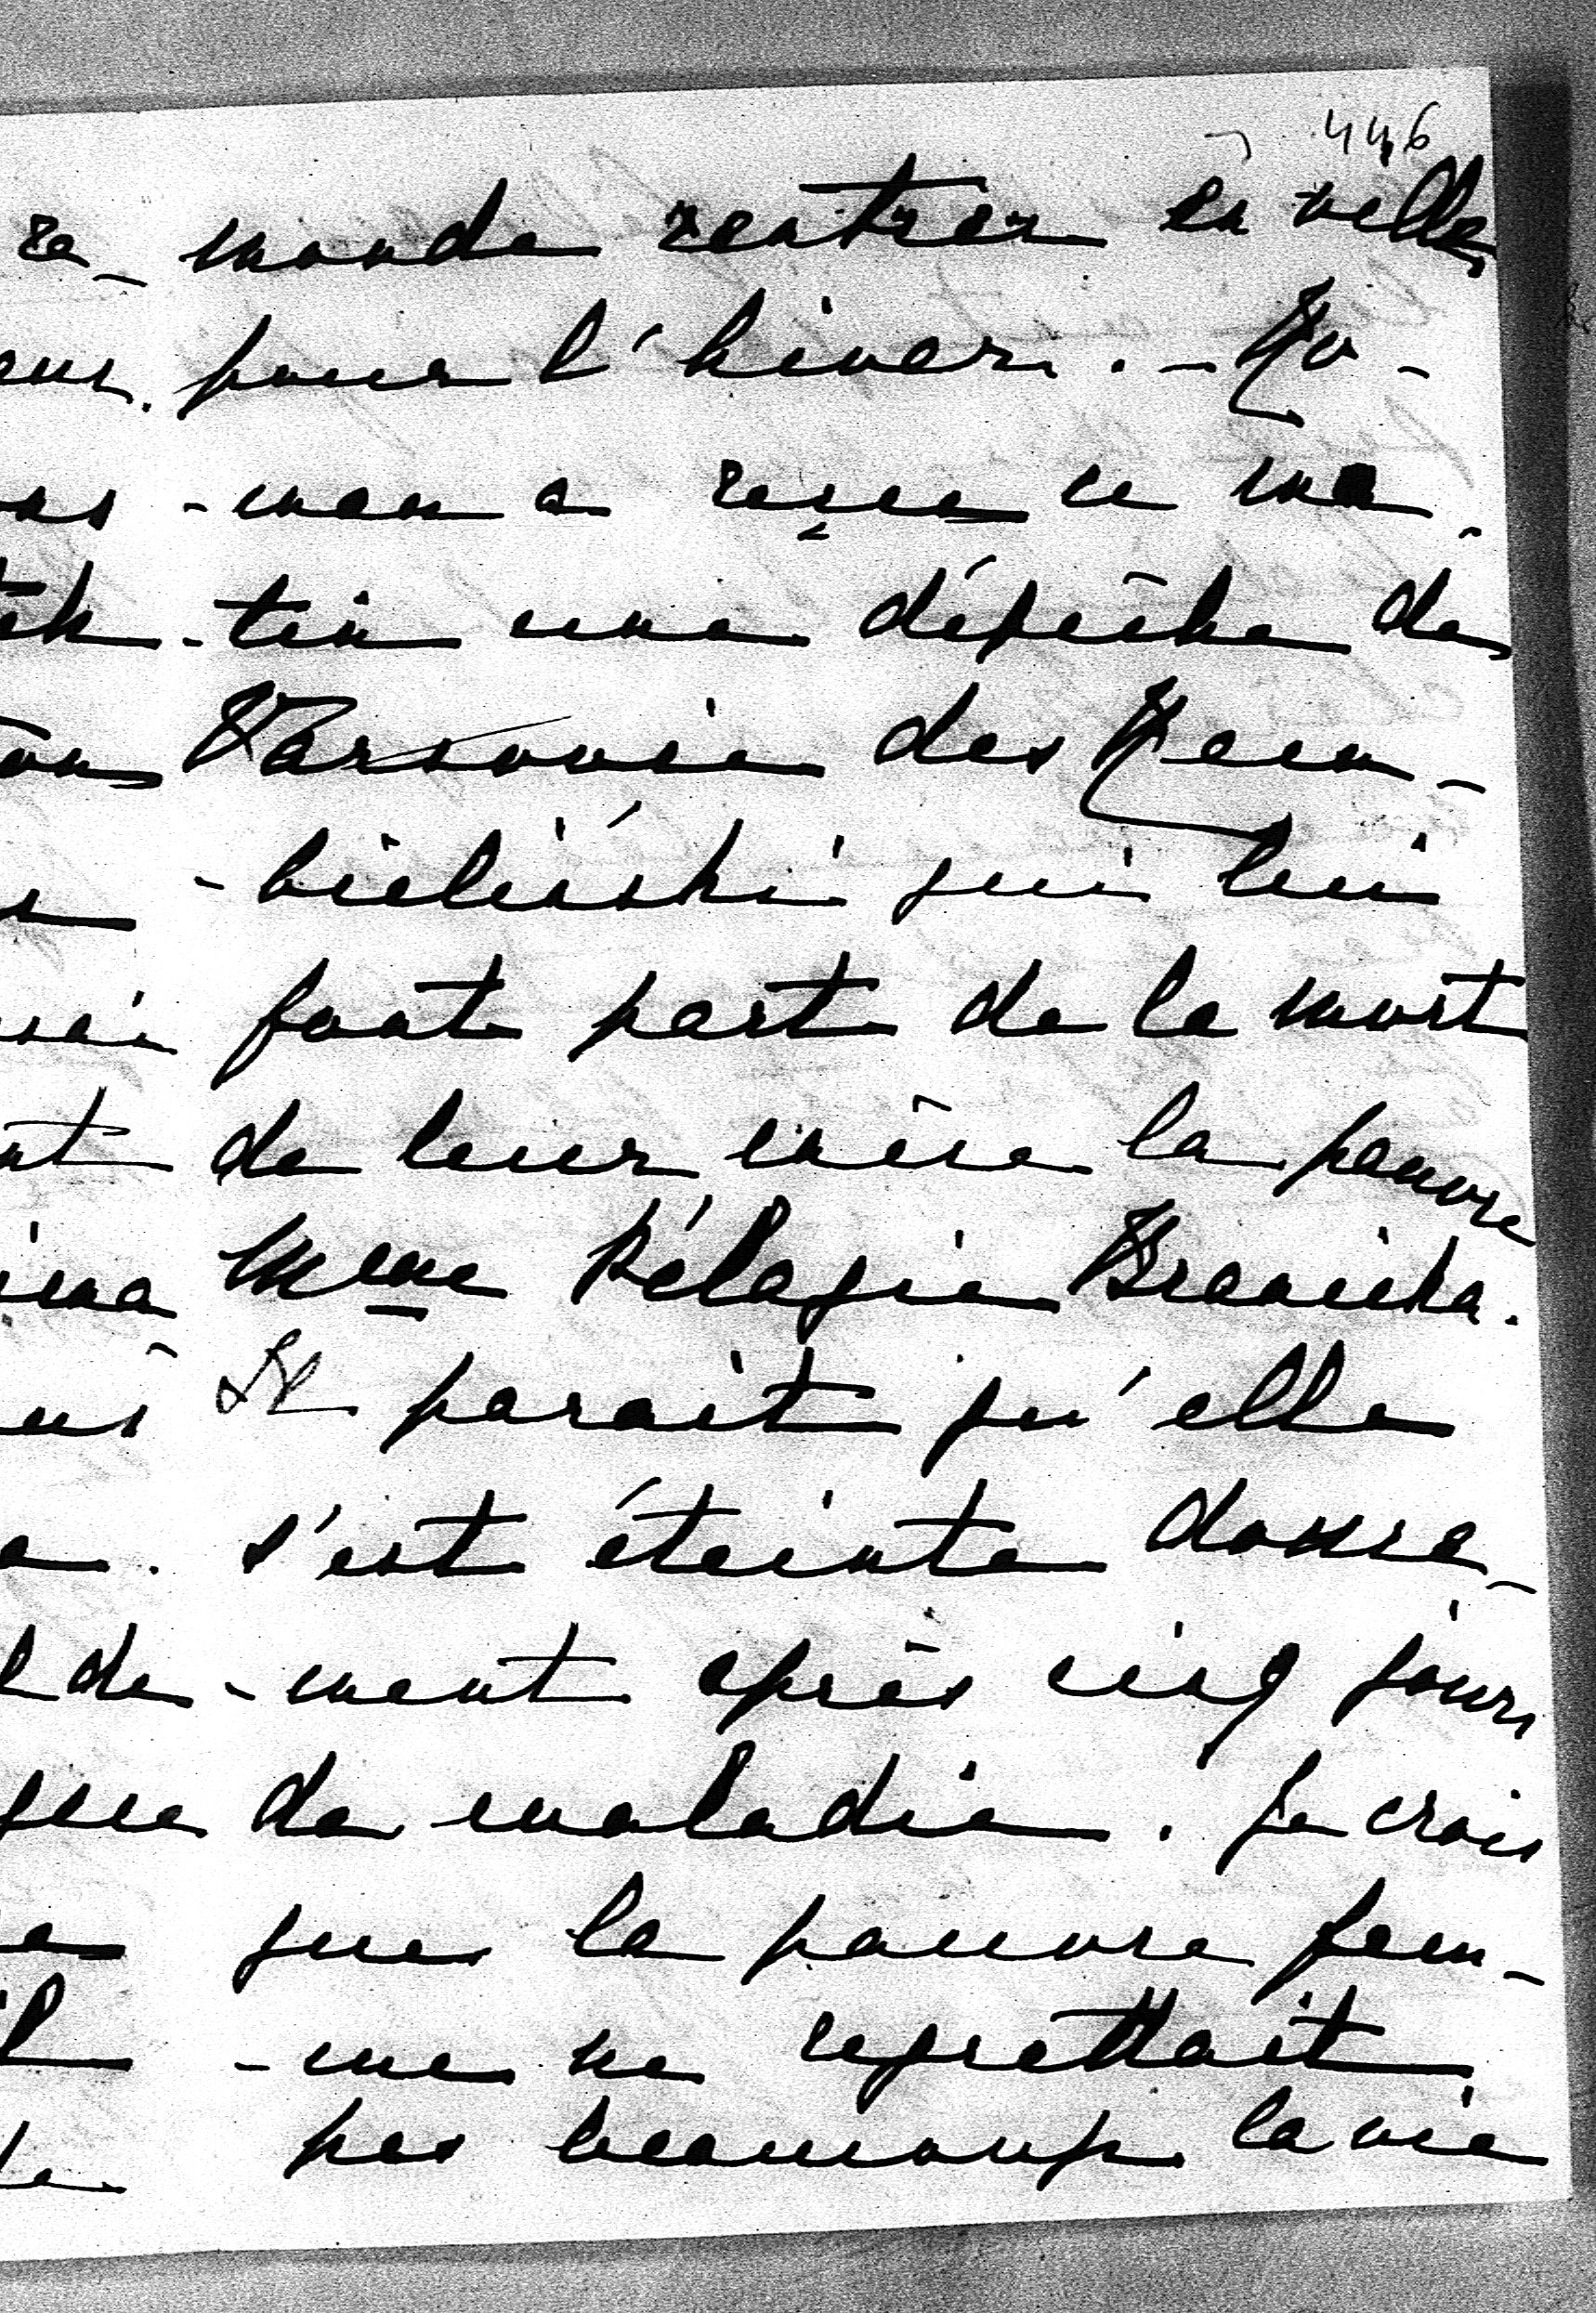 446
monde rentrer en ville
pour l'hiver. - Ro-
-man a reçu ce ma-
-tin une dépêche de
Varsovie des Rem-
-bieliński qui lui
font part de la mort
de leur mère la pauvre
Mme Pélagie Branicka.
Il parait qu'elle
s'est éteinte douce-
-ment après cinq jours
de maladie. Je crois
que la pauvre fem-
-me ne regrettait
pas beaucoup la vie